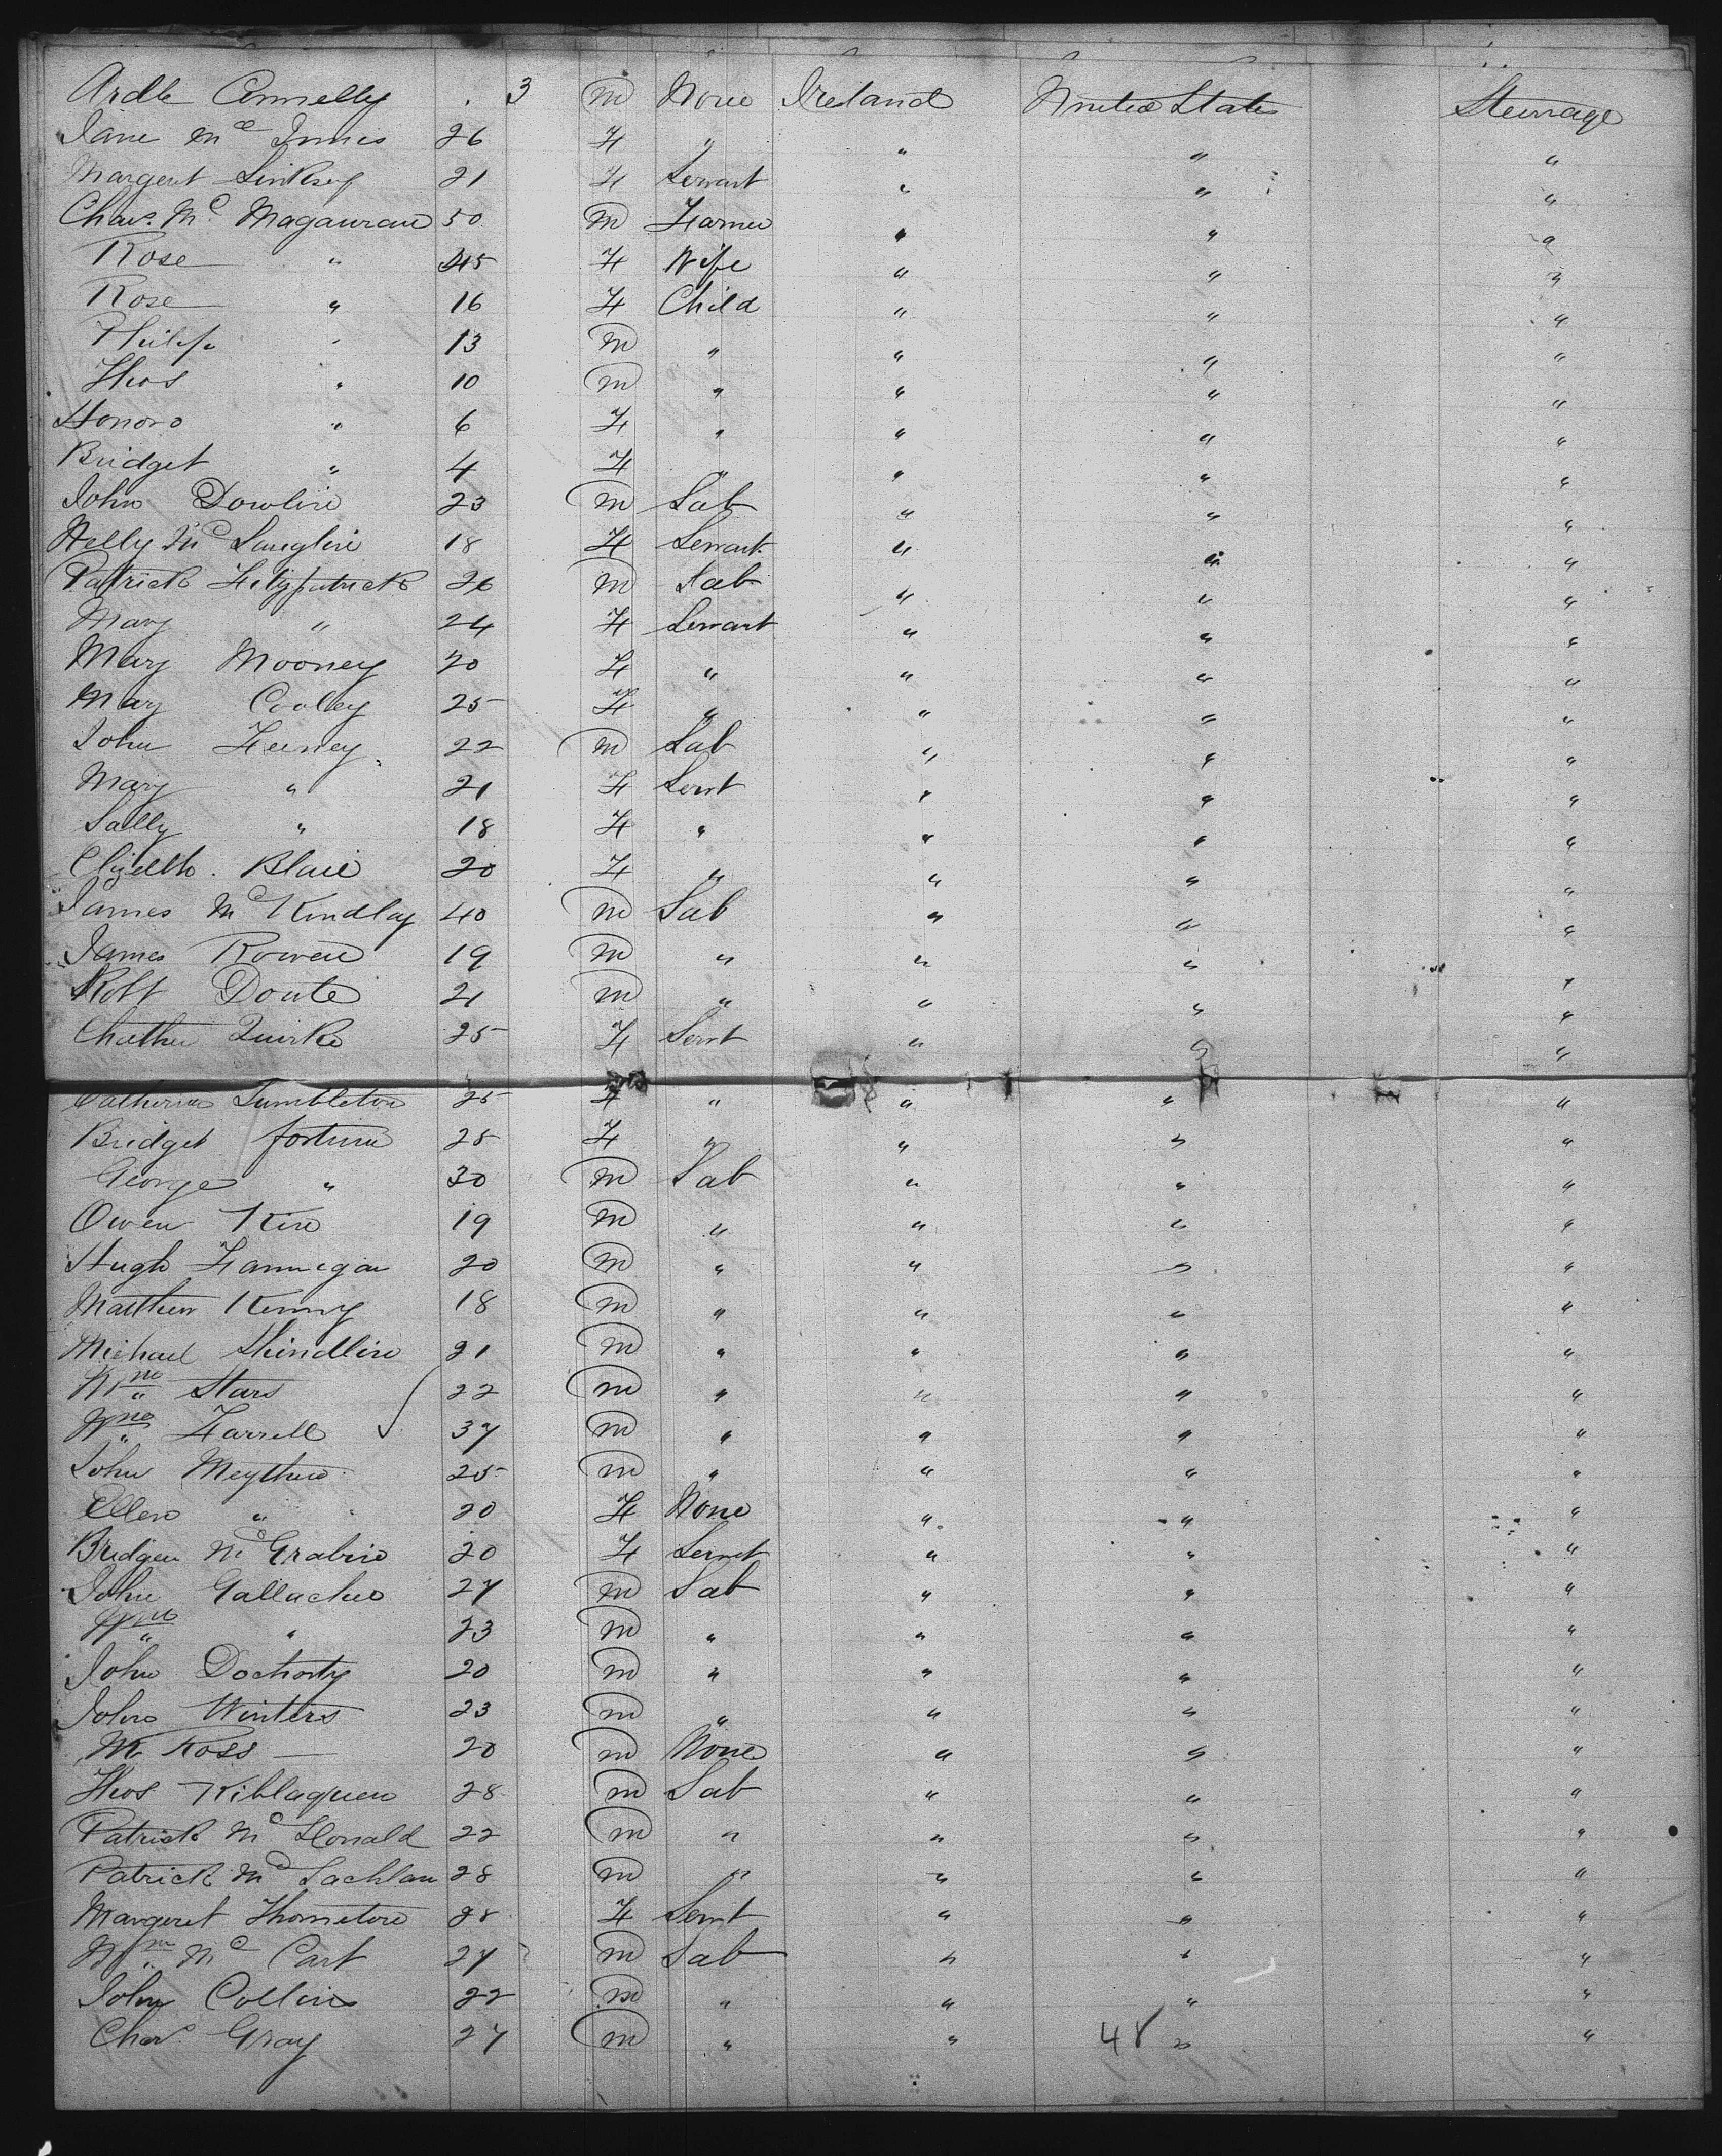 Ardle Connelly 3 m None Ireland United States Steerage
Jane Mc Innes 26 F " " " "
Margeret Linksey 21 F Servant " " "
Chas. Mc Magauran 50 m Farmer " " "
Rose " 45 F Wife " " "
Rose " 16 F Child " " "
Philip " 13 m " " " "
Thos " 10 m " " " "
Honoro " 6 F " " " "
Bridget " 4 F " " " "
John Dowlin 23 m Lab " " "
Nelly Mc Lauglin 18 F Servant " " "
Patrick Fitzpatrick 26 m Lab " " "
Mary " 24 F Servant " " "
Mary Mooney 20 F " " " "
Mary Cooley 25 F " " " "
John Feeney 22 m Lab " " "
Mary " 21 F Servt " " "
Sally " 18 F " " " "
Elizabth. Blair 20 F " " " "
James Mc Kindlay 40 m Lab " " "
James Rowen 19 m " " " "
Robt Doute 21 m " " " "
Quirke 25 F Servt " " "
Catherine Tumbleton 25 F " " " "
Bridget fortune 28 F " " " "
George " 30 m Lab " " "
Owen Kin 19 m " " " "
Hugh Fannegan 20 m " " " "
Matthew Kenny 18 m " " " "
Michael Shindlin 21 m " " " "
Wm Stars 22 m " " " "
Wm Farrell 37 m " " " "
John Meythen 25 m " " " "
Ellen " 20 F None " " "
Bridgen Mc Grabin 20 F Servnt " " "
John Gallacher 27 m Lab " " "
Wm " 23 m " " " "
John Dochorty 20 m " " " "
John Winters 23 m " " " "
Mr Ross — 20 m None " " "
Thos Kiblaquen 28 m Lab " " "
Patrick Mc Donald 22 m " " " "
Patrick Mc Lachlan 28 m " " " "
Margeret Thometon 28 F Servt " " "
Wm Mc Cart 27 m Lab " " "
John Collins 22 m " " " "
Chas Gray 27 m " " 48 " "